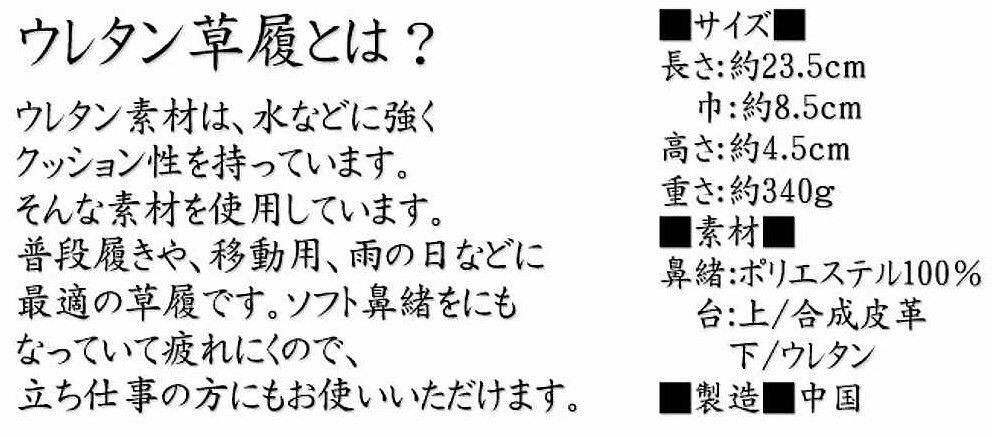 ウレタン草履とは？
ウレタン素材は、水などに強く
クッション性を持っています。
そんな素材を使用しています。
普段履きや、移動用、雨の日などに
最適の草履です。ソフト鼻緒をにも
なっていて疲れにくので、
立ち仕事の方にもお使いいただけます。
■サイズ■
長さ:約23.5cm
巾:約8.5cm
高さ:約4.5cm
重さ:約340g
■素材■
鼻緒:ポリエステル100%
台:上/合成皮革
下/ウレタン
■製造■中国